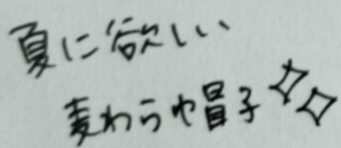 夏に欲しい
麦わら帽子✧✧